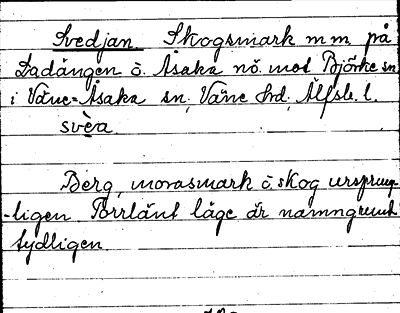 Svedjan. Skogsmark m m på
Ladängen ö. Åsaka nö. mot Björke sn
i Väne-Åsaka sn, Väne hd, Älfsb. l.
svèa
Berg, morasmark o. skog ursprung-
-ligen Torrlänt läge är namngrund
tydligen